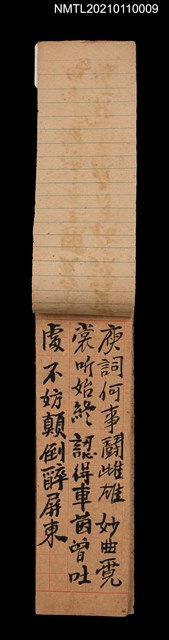 NMTL20210110009
庾詞何事鬪雌雄 妙曲霓
裳听始終 認得車茵曾吐
處 不妨顛倒醉屏東